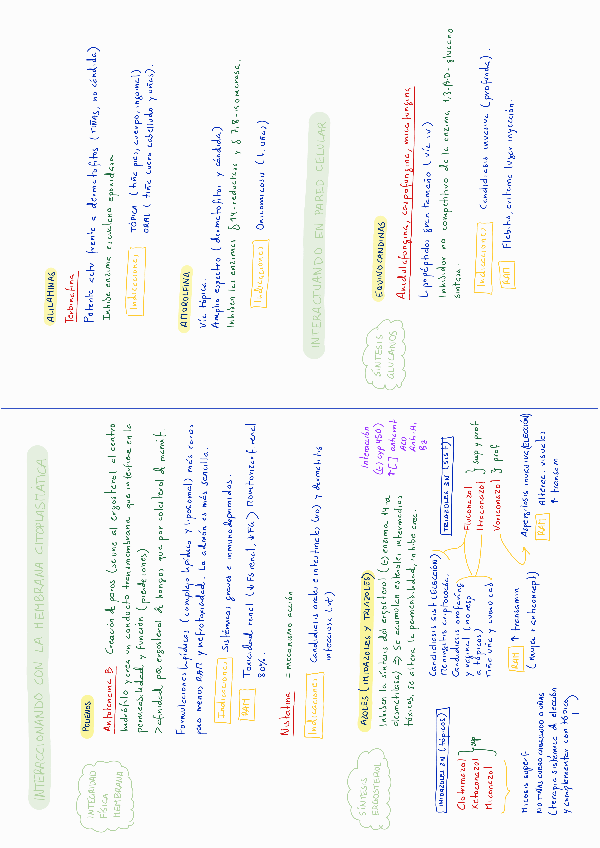 INTERACCIONANDO CON LA MEMBRANA CITOPLASMÁTICA
INTEGRIDAD
FÍSICA
MEMBRANA
POLIENOS
Anfotericina B Creación de poros (se une al ergosterol al centro
hidrófilo y crea un conducto transmembrana que interfiere en la
permeabilidad y función (pierde iones)
> afinidad por ergosterol de hongos que por colesterol de mamíf
Formulaciones lipídicas (complejo lipídico y liposomal) más caros
pero menos RAM y nefrotoxicidad. La admón es más sencilla.
Indicaciones: Sistémicas graves e inmunodeprimidos.
RAM Toxicidad renal (↓FS renal, ↓FG) Monitorizar f. renal
80%.
Nistatina = mecanismo acción
Indicaciones: Candidiasis orales e intestinales (vo) y dermatitis
infecciosa (vt)
SÍNTESIS
ERGOSTEROL
AZOLES (IMIDAZOLES Y TRIAZOLES)
Inhiben la síntesis del ergosterol (E) enzima 14 α
desmetilasa) ⇒ Se acumulan esteroles intermedios
tóxicos, se altera la permeabilidad, inhibe crec.
Interacción
(E) CYP450
↑[] anticoat
ACO
Anti.H.
Bz
IMIDAZOLES 2N (tópicos)
Clotrimazol
Ketoconazol
Miconazol
} sup
Micosis superf
NO TIÑAS CUERO CABELLUDO O UÑAS
(terapia sistémica de elección
y complementar con tópicos)
TRIAZOLES 3N (SIST)
Fluconazol
Itraconazol } sup y prof
Voriconazol } prof
Candidiasis sist (ELECCIÓN)
Meningitis criptococica
Candidiasis orofaringea
y vaginal (no resp
a tópicos)
Tiña uñas y cuero cab
RAM ↑ transamin
(mujer: anticoncep)
Aspergilosis invasiva (ELECCIÓN)
RAM Alterac. visuales
↑ transam
ALILAMINAS
Terbinafina
Potente activ frente a dermatofitos (tiñas, no cándida)
Inhibe enzima escualeno epoxidasa
Indicaciones: TÓPICA (tiña pies, cuerpo, inguinal)
ORAL (tiña cuero cabelludo y uñas).
AMOROLFINA
Vía tópica.
Amplio espectro (dermatofitos y cándida)
Inhiben las enzimas δ 14-reductasa y δ 7,8-isomerasa.
Indicaciones: Onicomicosis (t. uñas)
INTERACTUANDO EN PARED CELULAR
SÍNTESIS
GLUCANOS
EQUINOCANDINAS
Anidulafungina, caspofungina, micafungina
Lipopéptidos gran tamaño (vía iv)
Inhibidor no competitivo de la enzima 1,3-β-D-glucano
sintasa.
Indicaciones: Candidiasis invasiva (profunda).
RAM Flebitis, eritema lugar inyección.